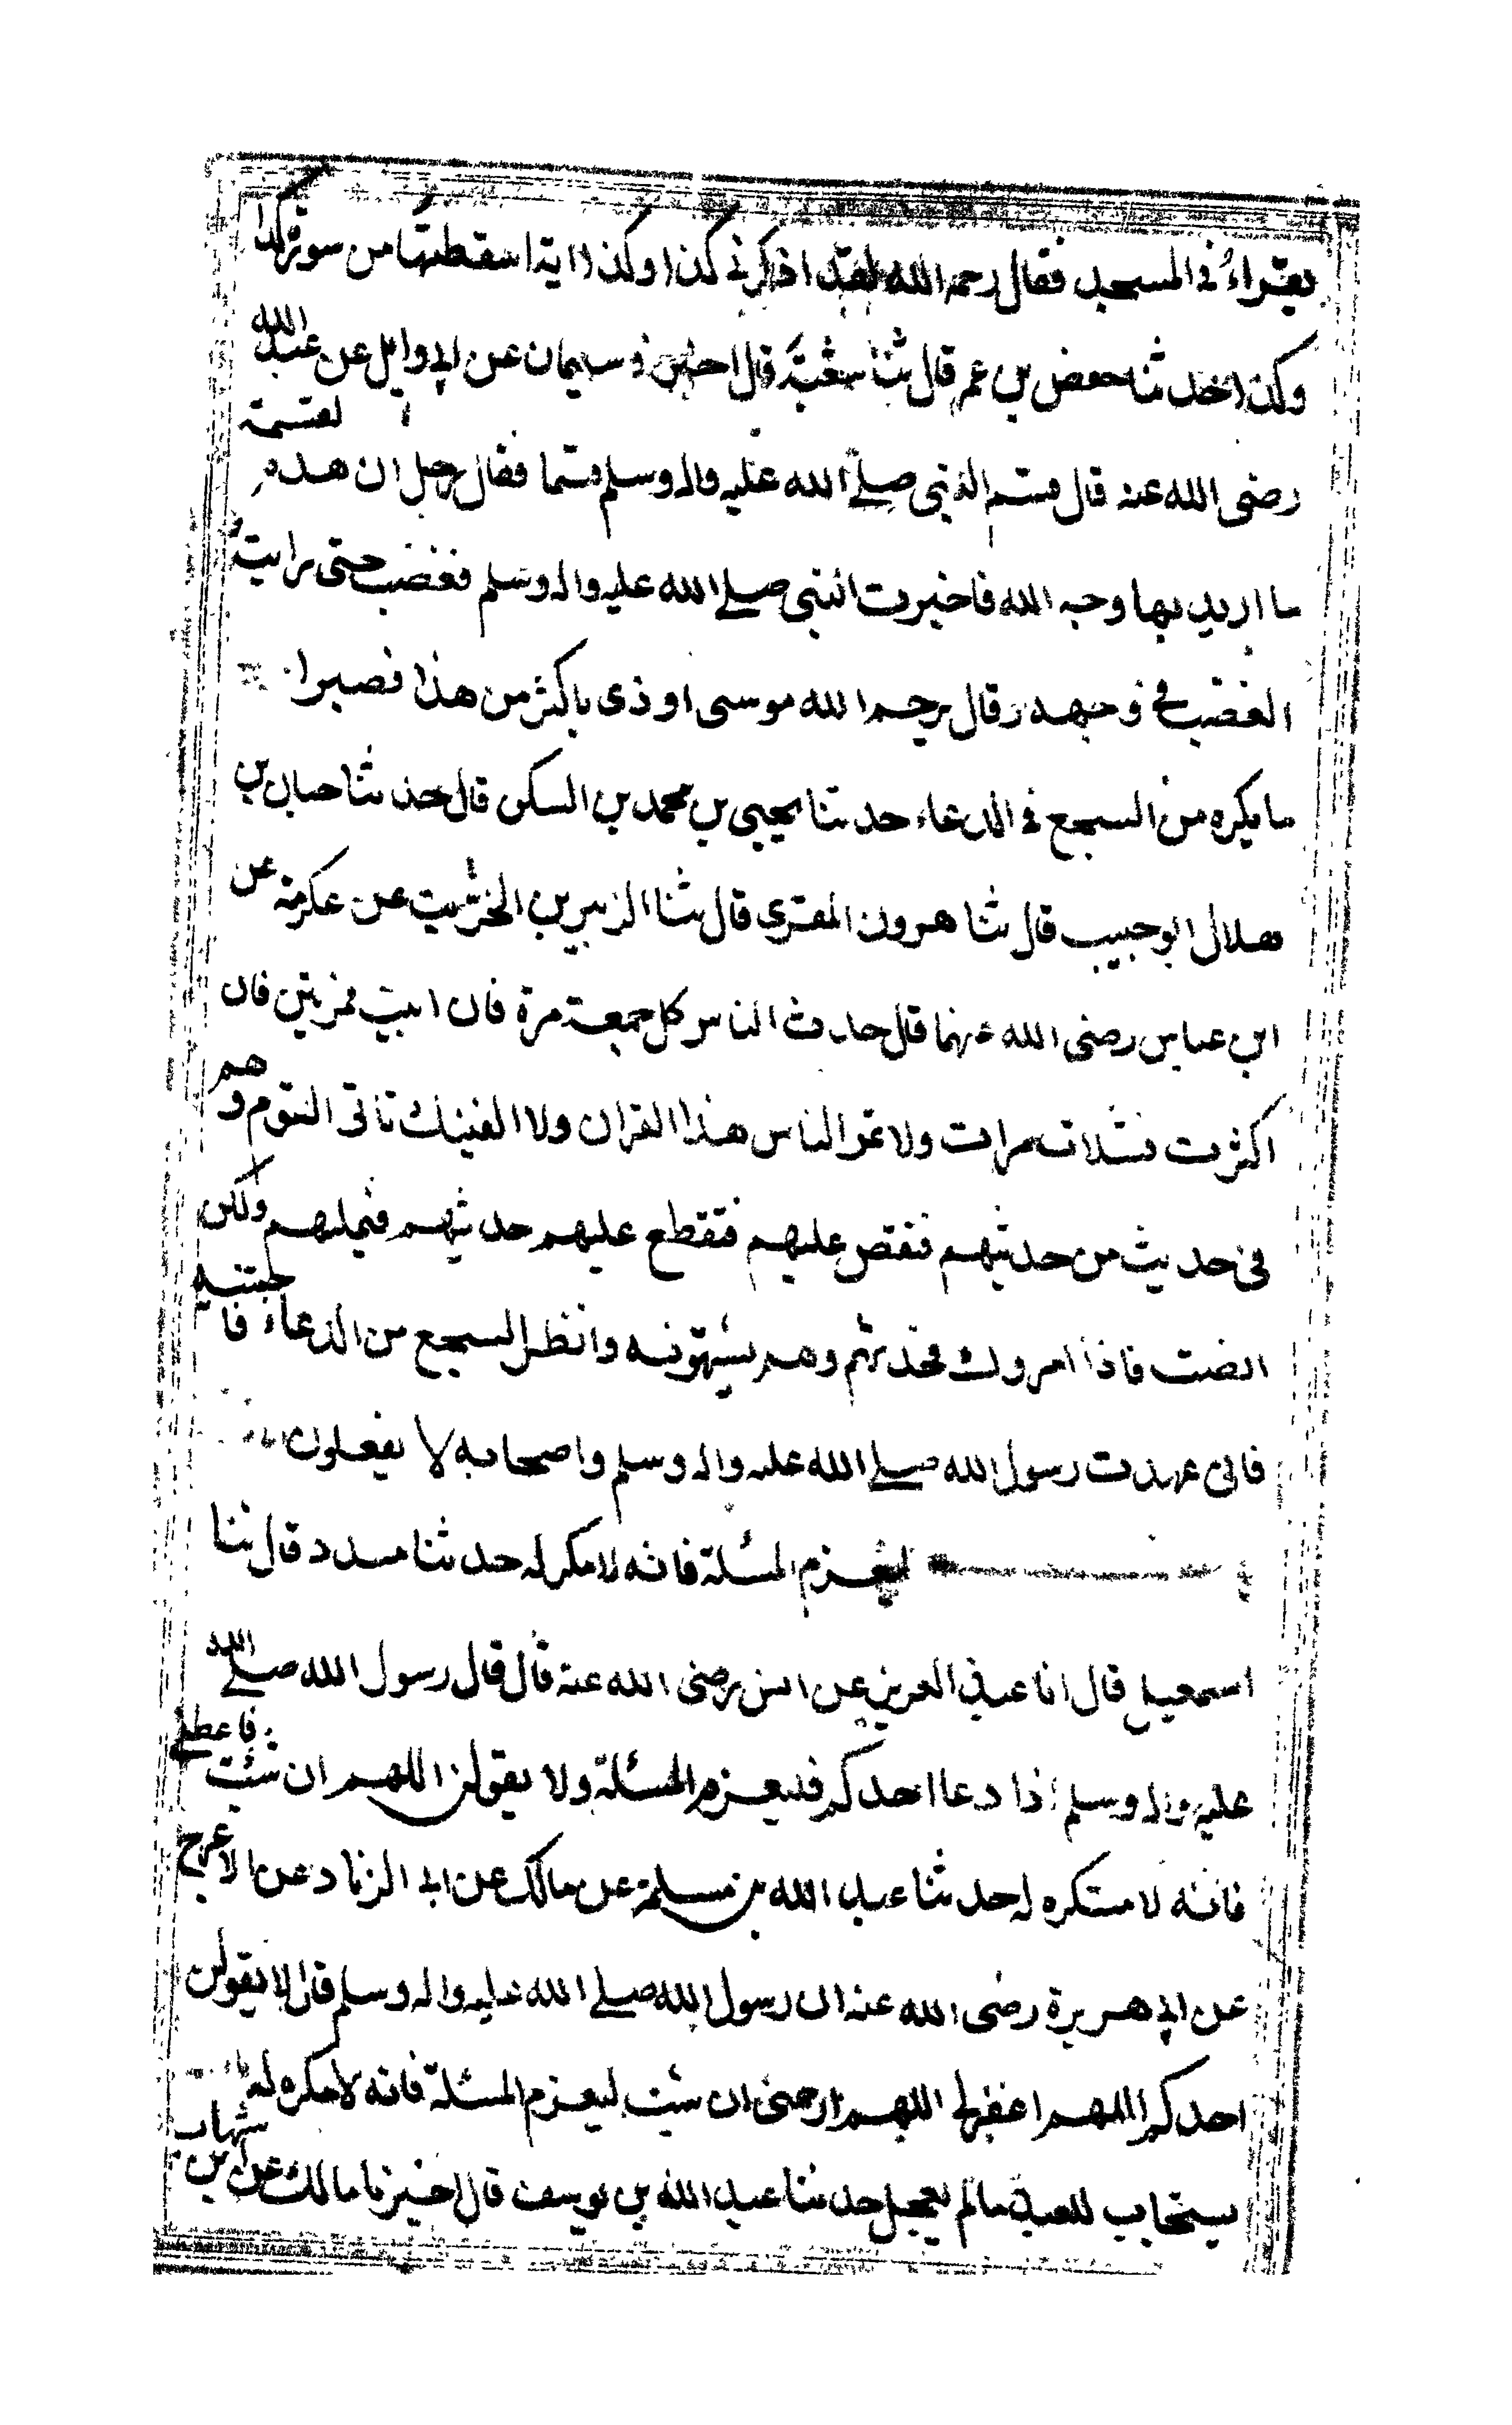 يقراء في المسجد فقال رحمه الله لقد اذكرني كذا وكذا اية اسقطتها من سورة كذا
وكذا حدثنا حفص بن عمر قال ثنا شعبة قال اخبرني سليمان عن ابي وايل عن عبد الله
رضى الله عنه قال قسم النبي صلى الله عليه واله وسلم قسما فقال رجل ان هذه لقسمة
ما اريد بها وجه الله فاخبرت النبي صلى الله عليه واله وسلم فغضب حتى رايت
الغضب في وجهه وقال يرحم الله موسى اوذى باكثر من هذا فصبر
ما يكره من السجع في الدعاء حدثنا يحيى بن محمد بن السكن قال حدثنا حبان بن
هلال ابو حبيب قال ثنا هرون المقرى قال ثنا الزبير بن الخريت عن عكرمة عن
ابن عباس رضى الله عنهما قال حدث الناس كل جمعة مرة فان ابيت فمرتين فان
اكثرت فثلاث مرات ولا تمل الناس هذا القران ولا الفينك تاتى القوم وهم
في حديث من حديثهم فتقص عليهم فتقطع عليهم حديثهم فتملهم ولكن
انصت فاذا امروك فحدثهم وهم يشتهونه وانظر السجع من الدعاء فاجتنبه
فانى عهدت رسول الله صلى الله عليه واله وسلم واصحابه لا يفعلون
ليعزم المسئلة فانه لا مكره له حدثنا مسدد قال ثنا
اسمعيل قال انا عبد العزيز عن انس رضى الله عنه قال قال رسول الله صلى الله
عليه واله وسلم اذا دعا احدكم فليعزم المسئلة ولا يقولن اللهم ان شئت فاعطنى
فانه لا مستكره له حدثنا عبد الله بن مسلمة عن مالك عن ابي الزناد عن الاعرج
عن ابي هريرة رضى الله عنه ان رسول الله صلى الله عليه واله وسلم قال لا يقولن
احدكم اللهم اغفر لي اللهم ارحمنى ان شئت ليعزم المسئلة فانه لا مكره له
يستجاب للعبد ما لم يعجل حدثنا عبد الله بن يوسف قال اخبرنا مالك عن ابن شهاب